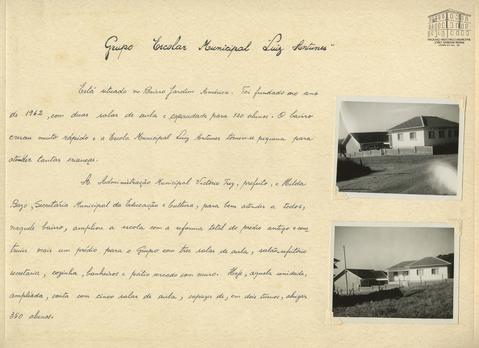 Grupo Escolar Municipal "Luiz Antunes"
Está situado no Bairro Jardim América. Foi fundado no ano
de 1962, com duas salas de aula e capacidade para 120 alunos. O bairro
cresceu muito rápido e a Escola Municipal Luiz Antunes tornou-se pequena para
atender tantas crianças.
A Administração Municipal Victorio Trez, prefeito, e Hilda
Bozo, Secretária Municipal da Educação e Cultura, para bem atender a todos,
naquele bairro, ampliou a escola com a reforma total do prédio antigo e cons
truiu mais um prédio para o Grupo com três salas de aula, salão, refeitório
secretaria, cozinha, banheiros e pátio cercado com muro. Hoje, aquela unidade,
ampliada, conta com cinco salas de aula, capazes de, em dois turnos, abrigar
350 alunos.